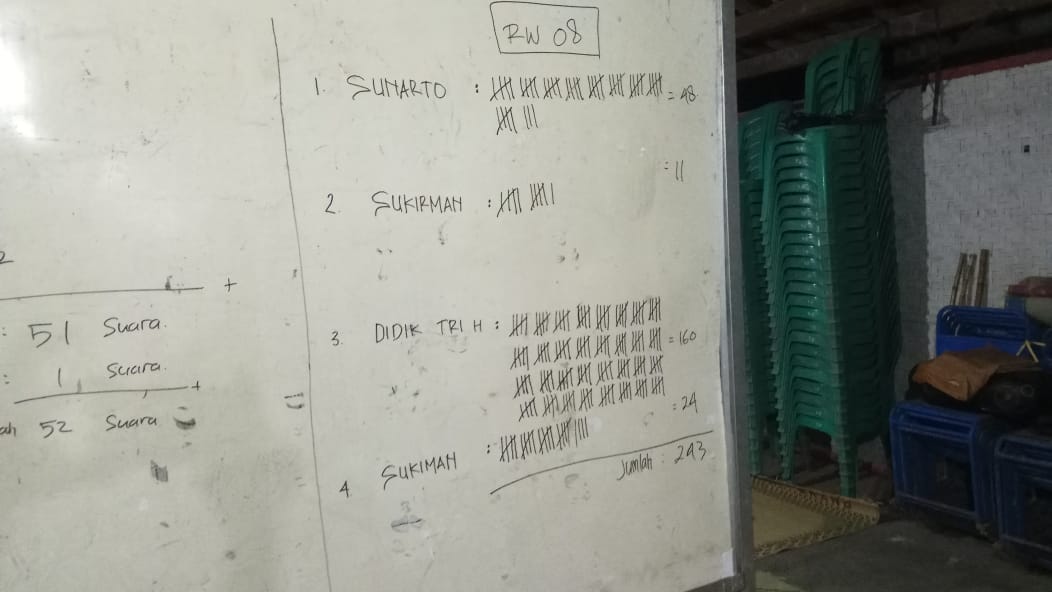 RW 08
1. SUNARTO : = 48
= 11
2. SUKIRMAN :
3. DIDIK TRI H : = 160
= 24
4. SUKIMAN :
Jumlah : 243
+
: 51 Suara.
: 1 Suara.
+
ah 52 Suara